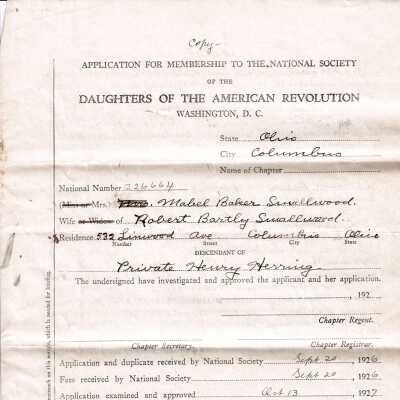 Copy-
APPLICATION FOR MEMBERSHIP TO THE NATIONAL SOCIETY
OF THE
DAUGHTERS OF THE AMERICAN REVOLUTION
WASHINGTON, D. C.
State Ohio
City Columbus
Name of Chapter
National Number 226664
(Miss or Mrs.) Mrs. Mabel Baker Smallwood.
Wife or Widow of Robert Bartly Smallwood.
Residence 532 Linwood Ave Columbus Ohio
Number Street City State
DESCENDANT OF
Private Henry Herring
The undersigned have investigated and approved the applicant and her application.
, 192
Chapter Regent.
Chapter Secretary. Chapter Registrar.
Application and duplicate received by National Society Sept 20 1926
Fees received by National Society Sept 20 1926
Application examined and approved Oct 13 1927